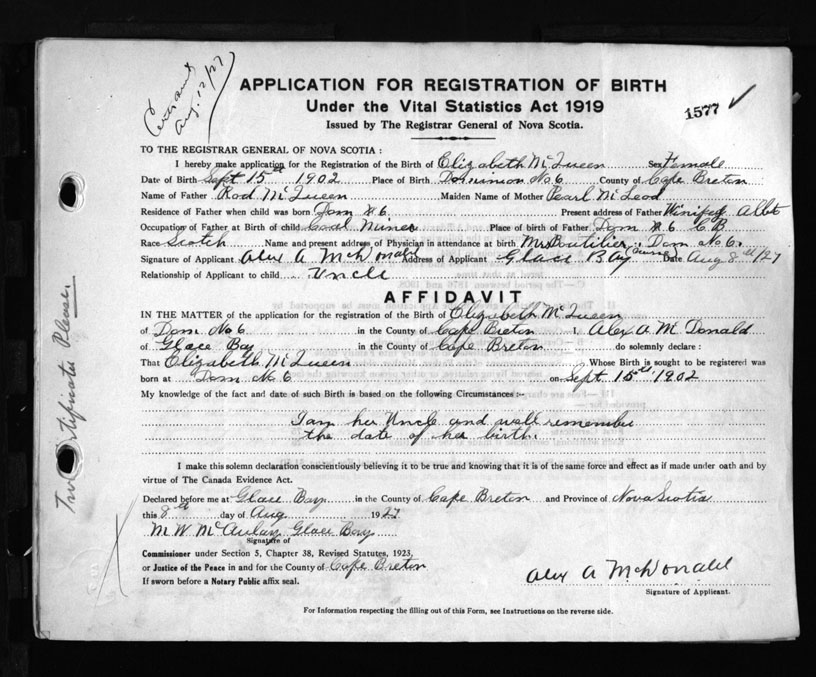 Aug. 12/27
APPLICATION FOR REGISTRATION OF BIRTH
Under the Vital Statistics Act 1919
1577 ✓
Issued by The Registrar General of Nova Scotia.
TO THE REGISTRAR GENERAL OF NOVA SCOTIA :
I hereby make application for the Registration of the Birth of Elizabeth McQueen Sex Female
Date of Birth Sept 15th 1902 Place of Birth Dominion No 6 County of Cape Breton
Name of Father Rod McQueen Maiden Name of Mother Pearl McLeod
Residence of Father when child was born Dom # 6 Present address of Father Winipeg Albt
Occupation of Father at Birth of child Coal Miner Place of birth of Father Dom # 6 C B
Race Scotch Name and present address of Physician in attendance at birth Mrs Boutilier, Dom No 6.
Signature of Applicant Alex A McDonald Address of Applicant Glace Bay Date Aug 8th/27
Relationship of Applicant to child Uncle
AFFIDAVIT
IN THE MATTER of the application for the registration of the Birth of Elizabeth McQueen
of Dom No 6 in the County of Cape Breton I, Alex A McDonald
of Glace Bay in the County of Cape Breton do solemnly declare :
That Elizabeth McQueen Whose Birth is sought to be registered was
born at Dom No 6 on Sept 15th 1902
My knowledge of the fact and date of such Birth is based on the following Circumstances :-
I am her Uncle and well remember
the date of her birth.
I make this solemn declaration conscientiously believing it to be true and knowing that it is of the same force and effect as if made under oath and by
virtue of The Canada Evidence Act.
Declared before me at Glace Bay in the County of Cape Breton and Province of Nova Scotia
this 8th day of Aug 1927
M W McAulay Glace Bay
Signature of
Commissioner under Section 5, Chapter 38, Revised Statutes, 1923,
or Justice of the Peace in and for the County of Cape Breton
If sworn before a Notary Public affix seal.
Alex A McDonald
Signature of Applicant.
For Information respecting the filling out of this Form, see Instructions on the reverse side.
Two Certificates Please.